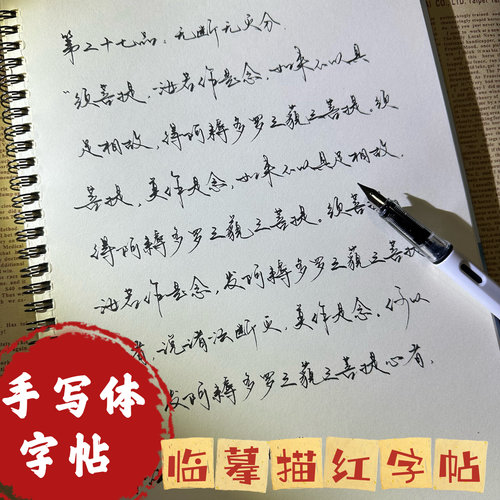 第二十七品，无断无灭分
“须菩提，汝若作是念，如来不以具
足相故，得阿耨多罗三藐三菩提。须
菩提，莫作是念，如来不以具足相故，
得阿耨多罗三藐三菩提。须菩
汝若作是念，发阿耨多罗三藐三菩提
者，说诸法断灭，莫作是念，何以
发阿耨多罗三藐三菩提心者，
手写体
字帖
临摹描红字帖